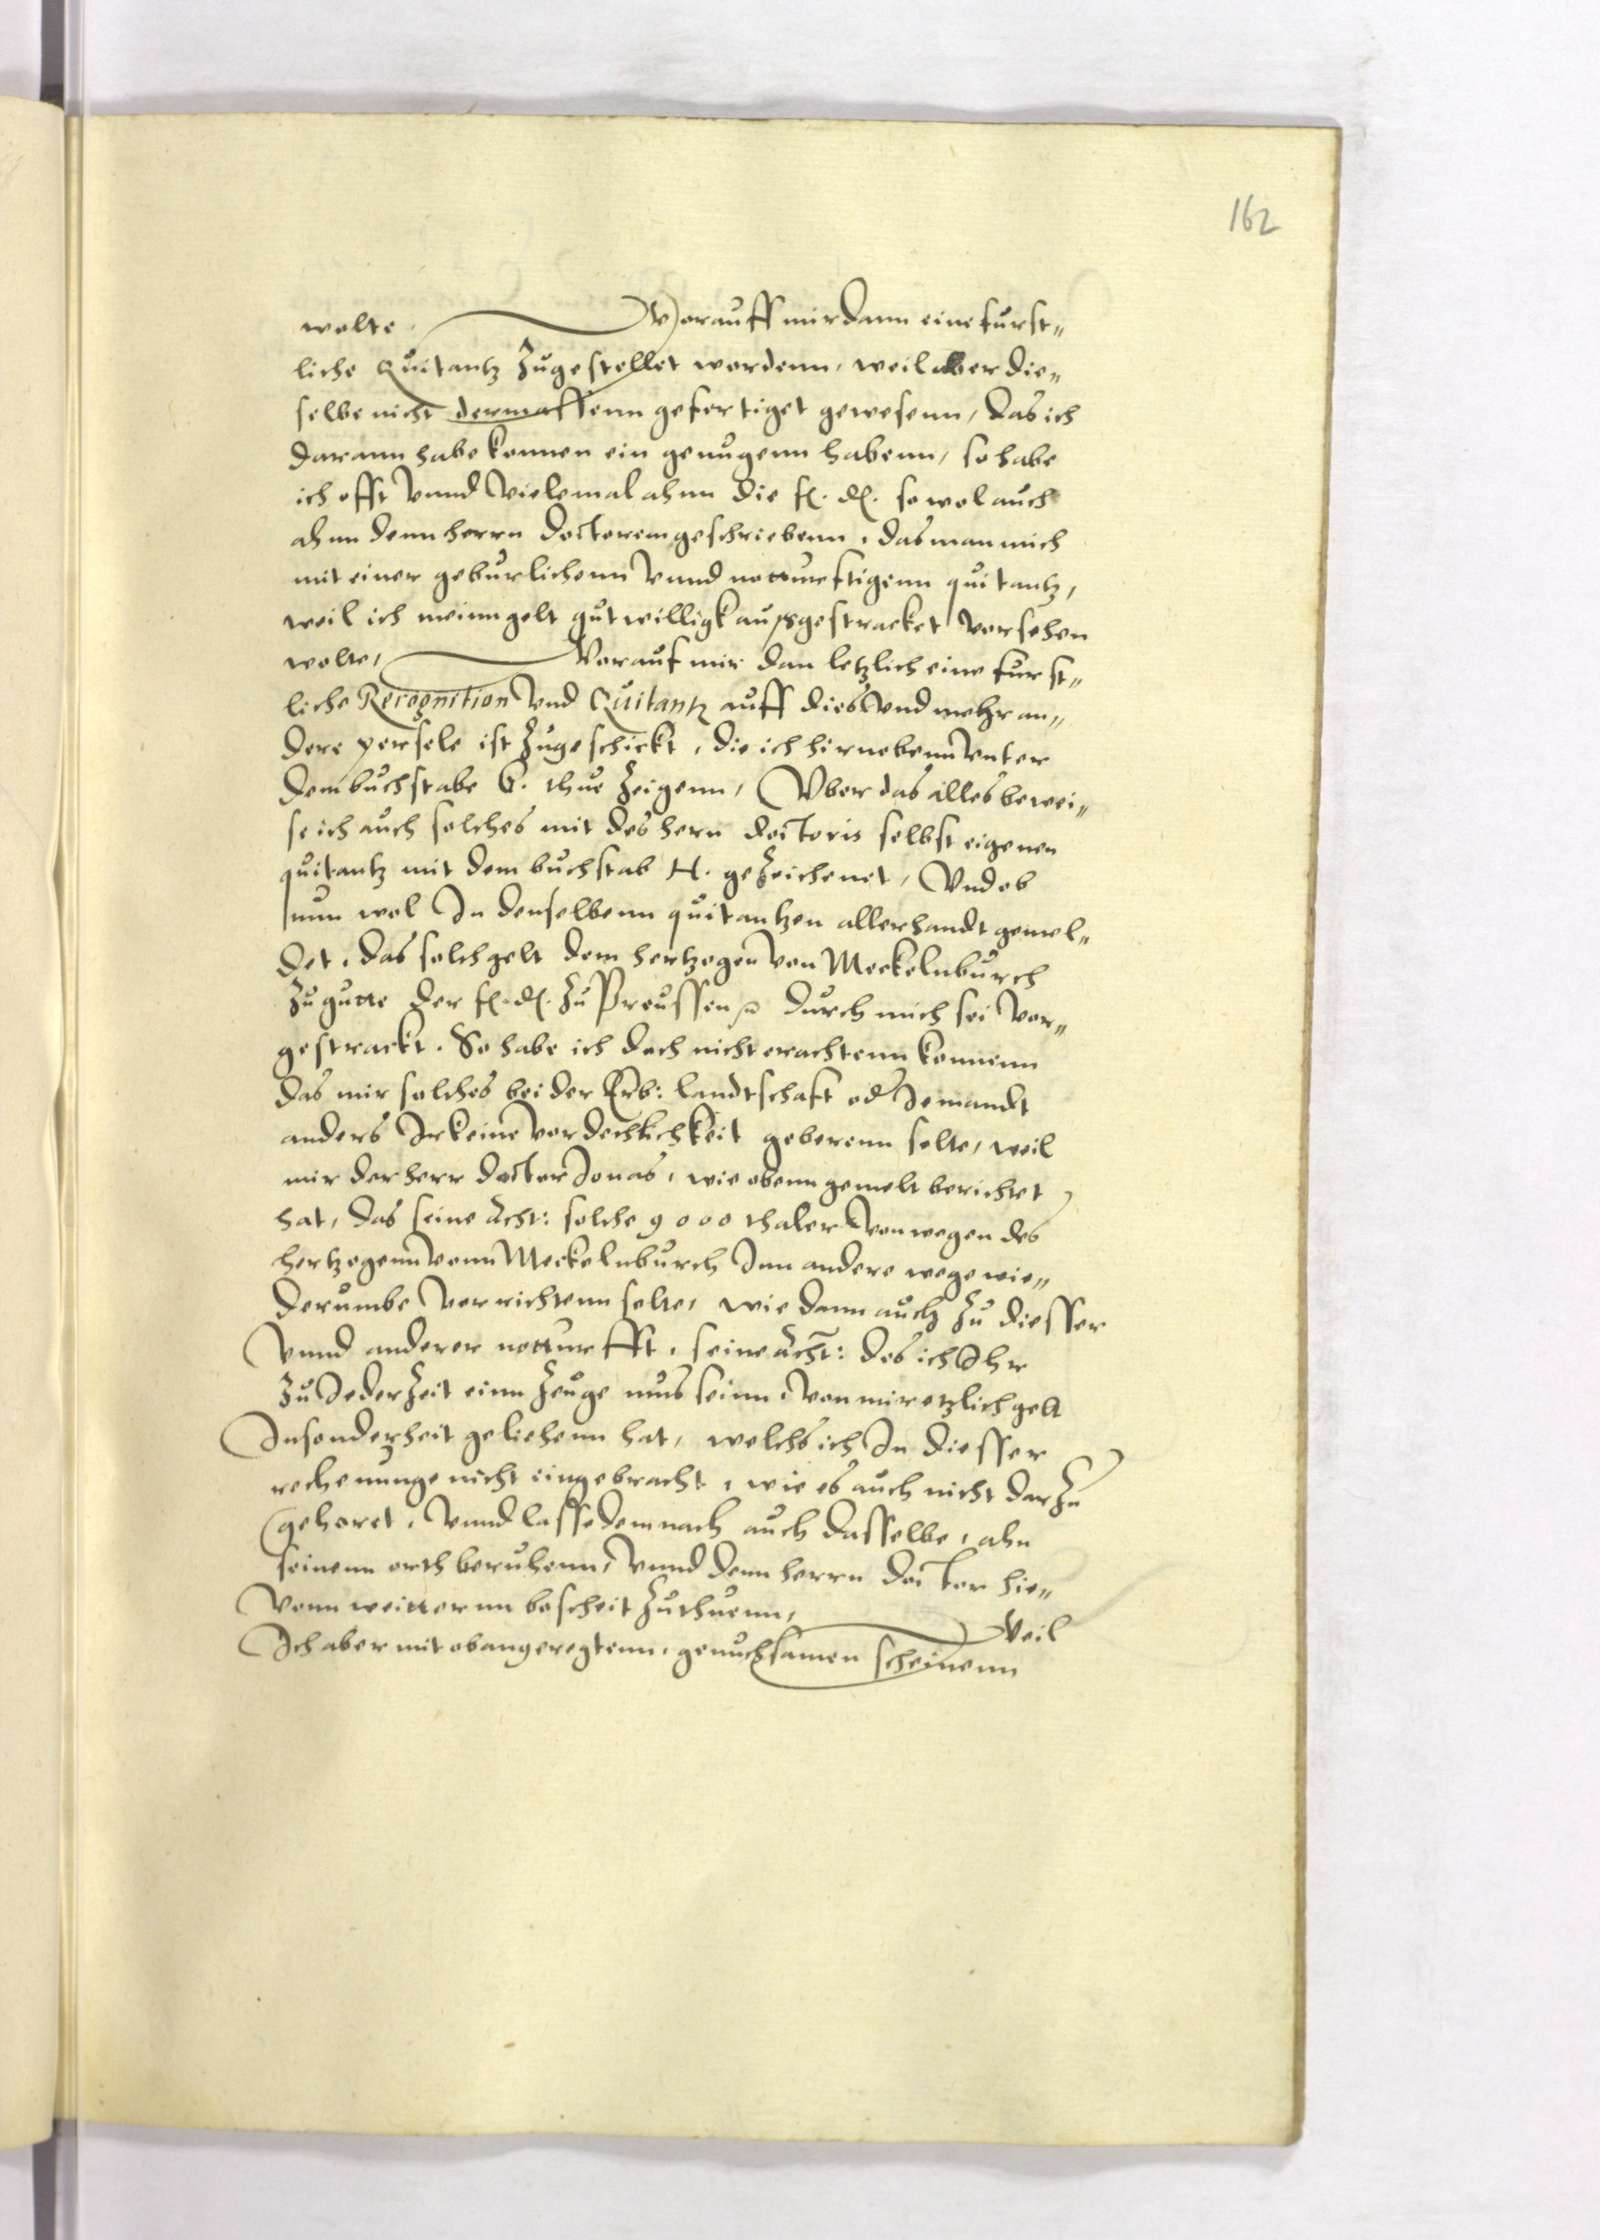 162
wolte. Worauff mir dann eine furst„
liche Quitantz zugestellet wordenn, weil aber die„
selbe nicht dermassenn gefertiget gewesenn, das ich
darann habe konnen ein genugenn habenn, so habe
ich offt vnnd vielemal ahnn die f. d. so wol auch
ahnn denn herrn doctorem geschriebenn, das man mich
mit einer geburlichenn vnnd notturftigenn quitantz,
weil ich meinn gelt gutwilligk außgestracket versehen
wolte, Worauf mir dan letzlich eine furst„
liche Recognition vnd Quitantz auff dies vnd mehr an„
dere persele ist zugeschickt, die ich hirnebenn vnter
dem buchstabe G. thue zeigenn, Vber das alles bewei„
se ich auch solches mit des hern doctoris selbst eigenen
quitantz mit dem buchstab H. gezeichenet, Vnd ob
nun wol In denselbenn quitantzen allerhandt gemel„
det, das solch gelt dem hertzogen von Meckelnburch
zugutte der f. d. zu Preussen durch mich sei vor„
gestrackt. So habe ich doch nicht erachtenn konnenn
das mir solches bei der Erb: landtschaft od Jemandt
anders Irkeine verdechlichkeit geberenn solte, weil
mir der herr doctor Jonas, wie obenn gemelt berichtet
hat, das seine Acht: solche 9000 thaler von wegen des
hertzogenn vonn Meckelnburch Inn andere wege wie„
derumbe verrichtenn solte, wie dann auch zu diesser
vnnd anderer notturfft, seine Acht: des ich Ihr
zu Jeder zeit einn zeuge mus seinn, von mir etzlich gelt
Insonderheit geliehenn hat, welchs ich In diesser
rechenunge nicht eingebracht, wie es auch nicht darzu
gehoret, vnnd lasse demnach auch dasselbe, ahn
seinenn orth beruhenn, vnnd denn herrn doctor hie„
vonn weitternn bescheit zuthuenn, Weil
Ich aber mit obangeregtenn, genuchsamen scheinenn